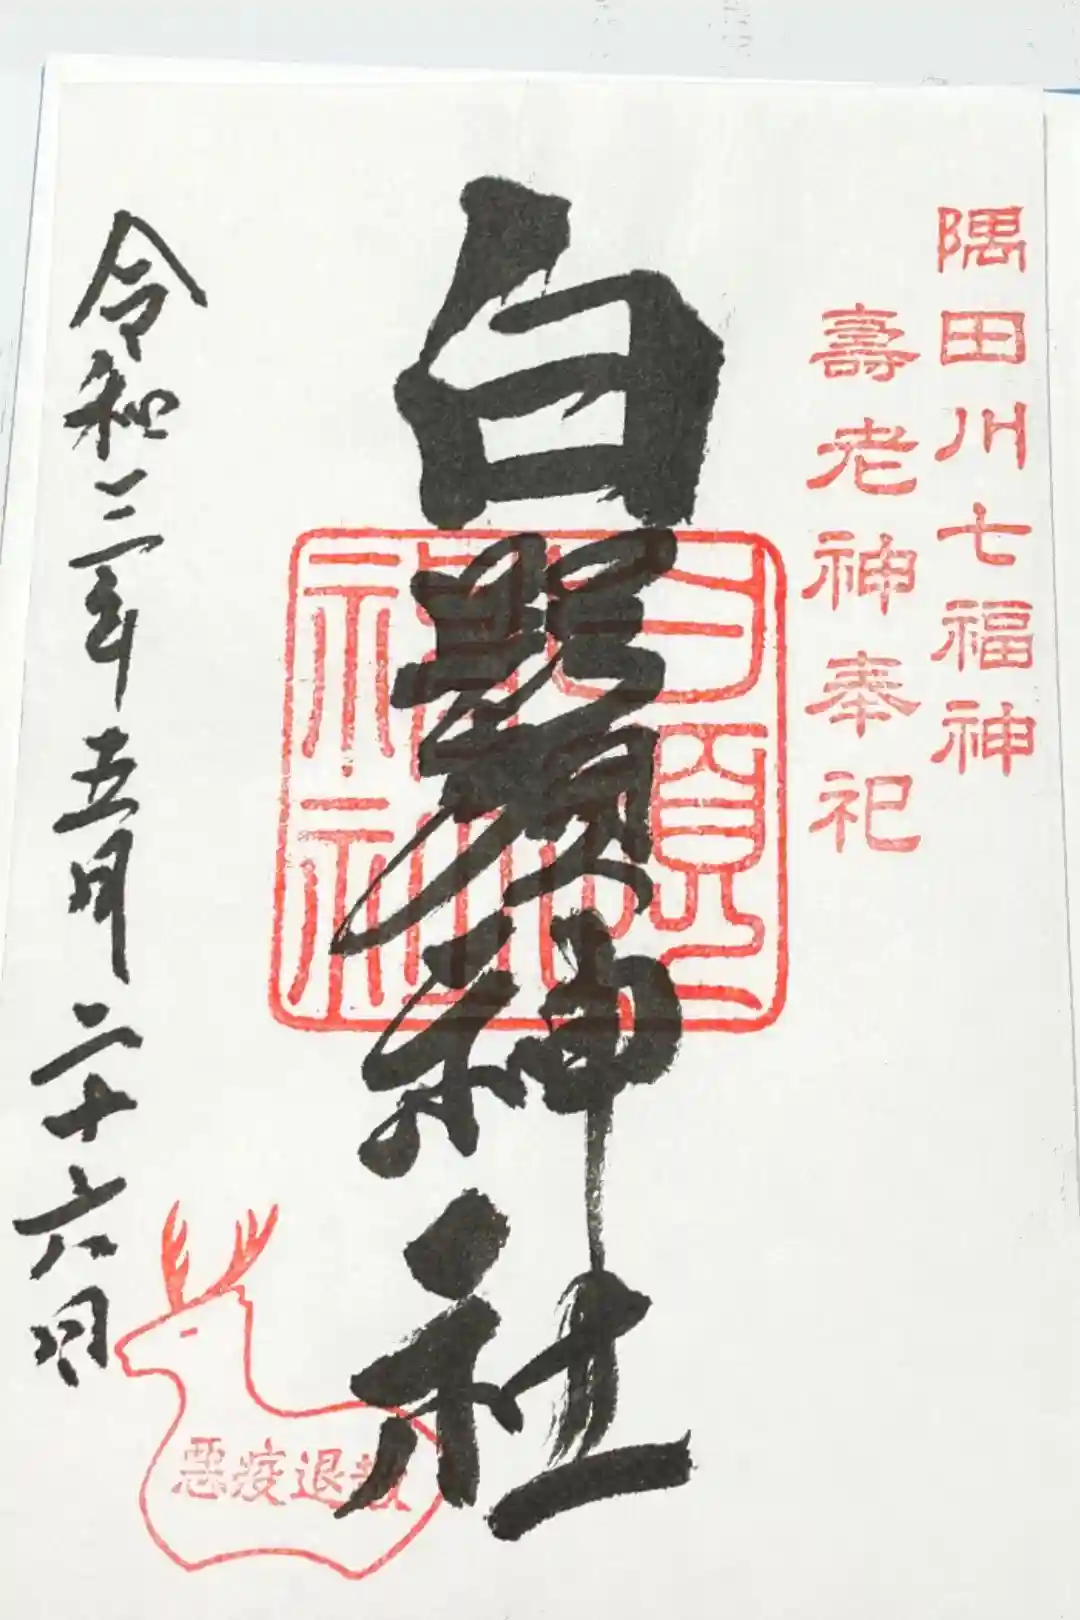 隅田川七福神
壽老神奉祀
白鬚神社
令和三年五月二十六日
悪疫退散